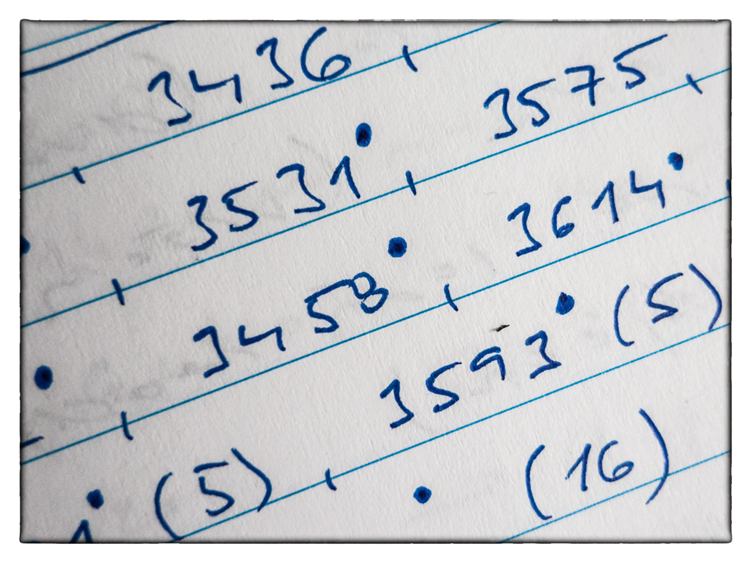 3436
3531 3575
3458 3614
1 (5) 3593 (5)
(16)